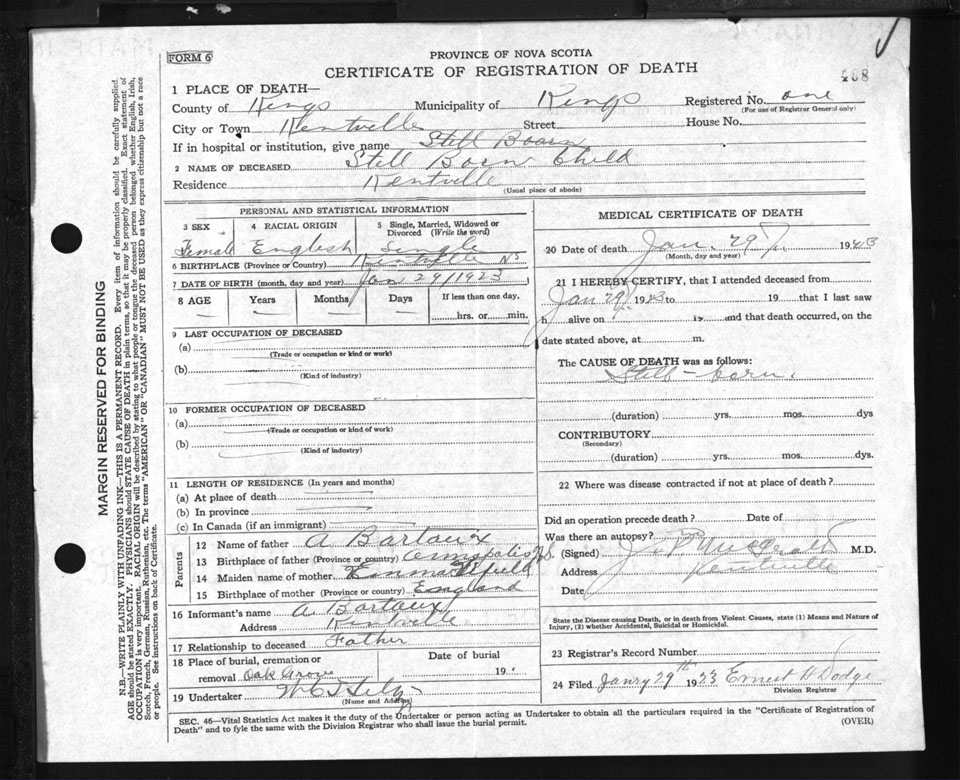 FORM 6
PROVINCE OF NOVA SCOTIA
CERTIFICATE OF REGISTRATION OF DEATH
468
1 PLACE OF DEATH—
County of Kings Municipality of Kings Registered No. one
(For use of Registrar General only)
City or Town Kentville Street House No.
If in hospital or institution, give name Still Boarn
2 NAME OF DECEASED Still Boarn Child
Residence Kentville
(Usual place of abode)
PERSONAL AND STATISTICAL INFORMATION
3 SEX 4 RACIAL ORIGIN 5 Single, Married, Widowed or Divorced (Write the word)
Female English Single
6 BIRTHPLACE (Province or Country) Kentville NS
7 DATE OF BIRTH (month, day and year) Jan 29/1923
8 AGE Years Months Days If less than one day,
hrs. or min.
9 LAST OCCUPATION OF DECEASED
(a)
(Trade or occupation or kind or work)
(b)
(Kind of industry)
10 FORMER OCCUPATION OF DECEASED
(a)
(Trade or occupation or kind of work)
(b)
(Kind of industry)
11 LENGTH OF RESIDENCE (In years and months)
(a) At place of death
(b) In province
(c) In Canada (if an immigrant)
Parents
12 Name of father A Bartaux
13 Birthplace of father (Province or country)
14 Maiden name of mother
15 Birthplace of mother (Province or country) England
16 Informant's name A Bartaux
Address Kentville
17 Relationship to deceased Father
18 Place of burial, cremation or removal Oak Grove Date of burial 19
19 Undertaker
(Name and Address)
MEDICAL CERTIFICATE OF DEATH
20 Date of death Jan. 29 1923
(Month, day and year)
21 I HEREBY CERTIFY, that I attended deceased from
Jan 29 1923 to 19 that I last saw
h alive on 19 and that death occurred, on the
date stated above, at m.
The CAUSE OF DEATH was as follows:
Still-born.
(duration) yrs. mos. dys
CONTRIBUTORY
(Secondary)
(duration) yrs. mos. dys.
22 Where was disease contracted if not at place of death?
Did an operation precede death? Date of
Was there an autopsy?
(Signed) M.D.
Address Kentville
Date
State the Disease causing Death, or in death from Violent Causes, state (1) Means and Nature of
Injury, (2) whether Accidental, Suicidal or Homicidal.
23 Registrar's Record Number
24 Filed Janry 29th 1923 Ernest H Dodge
Division Registrar
SEC. 46—Vital Statistics Act makes it the duty of the Undertaker or person acting as Undertaker to obtain all the particulars required in the "Certificate of Registration of
Death" and to fyle the same with the Division Registrar who shall issue the burial permit.
(OVER)
MARGIN RESERVED FOR BINDING
N.B.—WRITE PLAINLY WITH UNFADING INK—THIS IS A PERMANENT RECORD. Every item of information should be carefully supplied.
AGE should be stated EXACTLY. PHYSICIANS should STATE CAUSE OF DEATH in plain terms, so that it may be properly classified. Exact statement of
OCCUPATION is very important. RACIAL ORIGIN will be described by stating to what people or tongue the deceased person belonged whether English, Irish,
Scotch, French, German, Russian, Ruthenian, etc. The terms "AMERICAN" or "CANADIAN" MUST NOT BE USED as they express citizenship but not a race
or people. See instructions on back of Certificate.